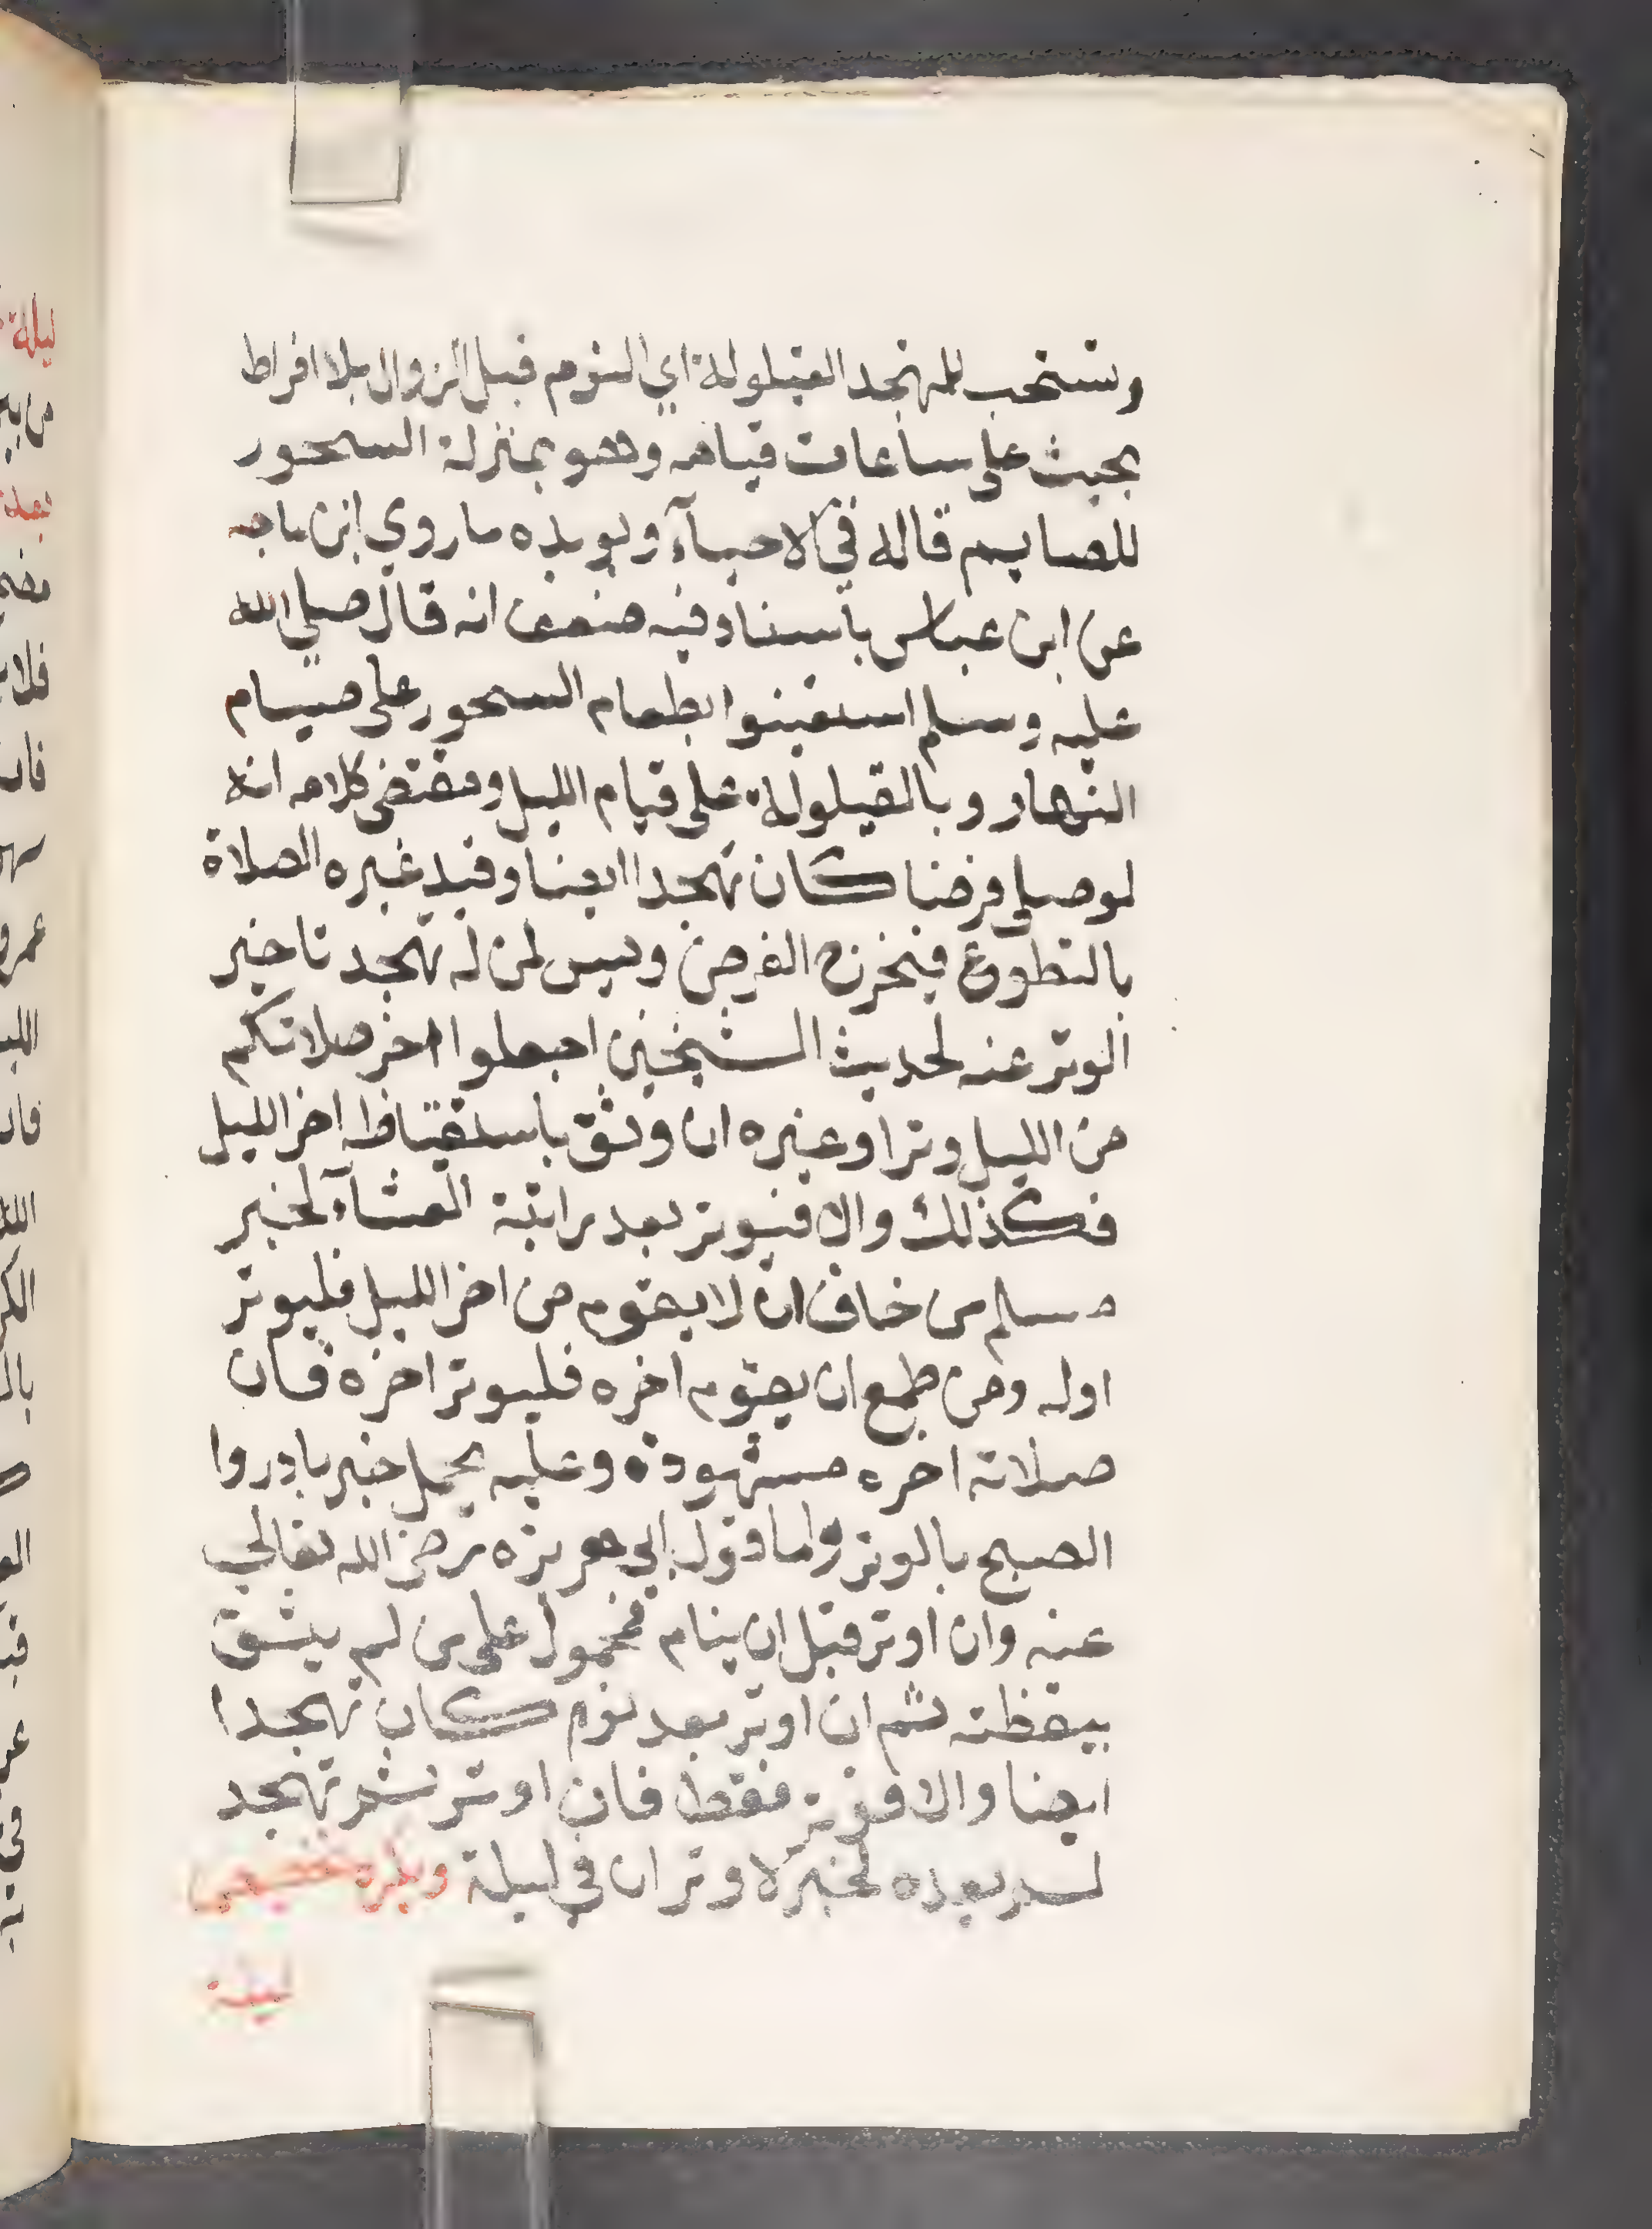 وتستحب للمتهجد القيلولة اي النوم قبل الزوال بلا افراط
بحيث على ساعات قيامه وهو بمنزلة السحور
للصايم قاله في الاحيآء ويويده ما روي ابن ماجه
عن ابن عباس باسناد فيه ضعف انه قال صلي الله
عليه وسلم استعينوا بطعام السحور على صيام
النهار وبالقيلولة على قيام الليل ومقتضى كلامه انه
لو صلى فرضا كان تهجدا ايضا وقيد غيره الصلاة
بالتطوع فيخرج الفرض ويسن لمن له تهجد تاخير
الوتر عنه لحديث الشيخين اجعلوا اخر صلاتكم
من الليل وترا وغيره ان وثق باستيقاظه اخر الليل
فكذلك والا فيوتر بعد راتبة العشآء لخبر
مسلم من خاف ان لا يقوم من اخر الليل فليوتر
اوله ومن طمع ان يقوم اخره فليوتر اخره فان
صلاته اخره مشهودة وعليه يحمل خبر بادروا
الصبح بالوتر واما قول ابي هريره رضي الله تعالي
عنه وان اوتر قبل ان ينام فمحمول على من لم يثق
بيقظته ثم ان اوتر بعد نوم كان تهجدا
ايضا والا فوتر فقط فان اوتر ثم تهجد
لم يعده لخبر لا وتران في ليلة ويكره تخصيص
ليلة